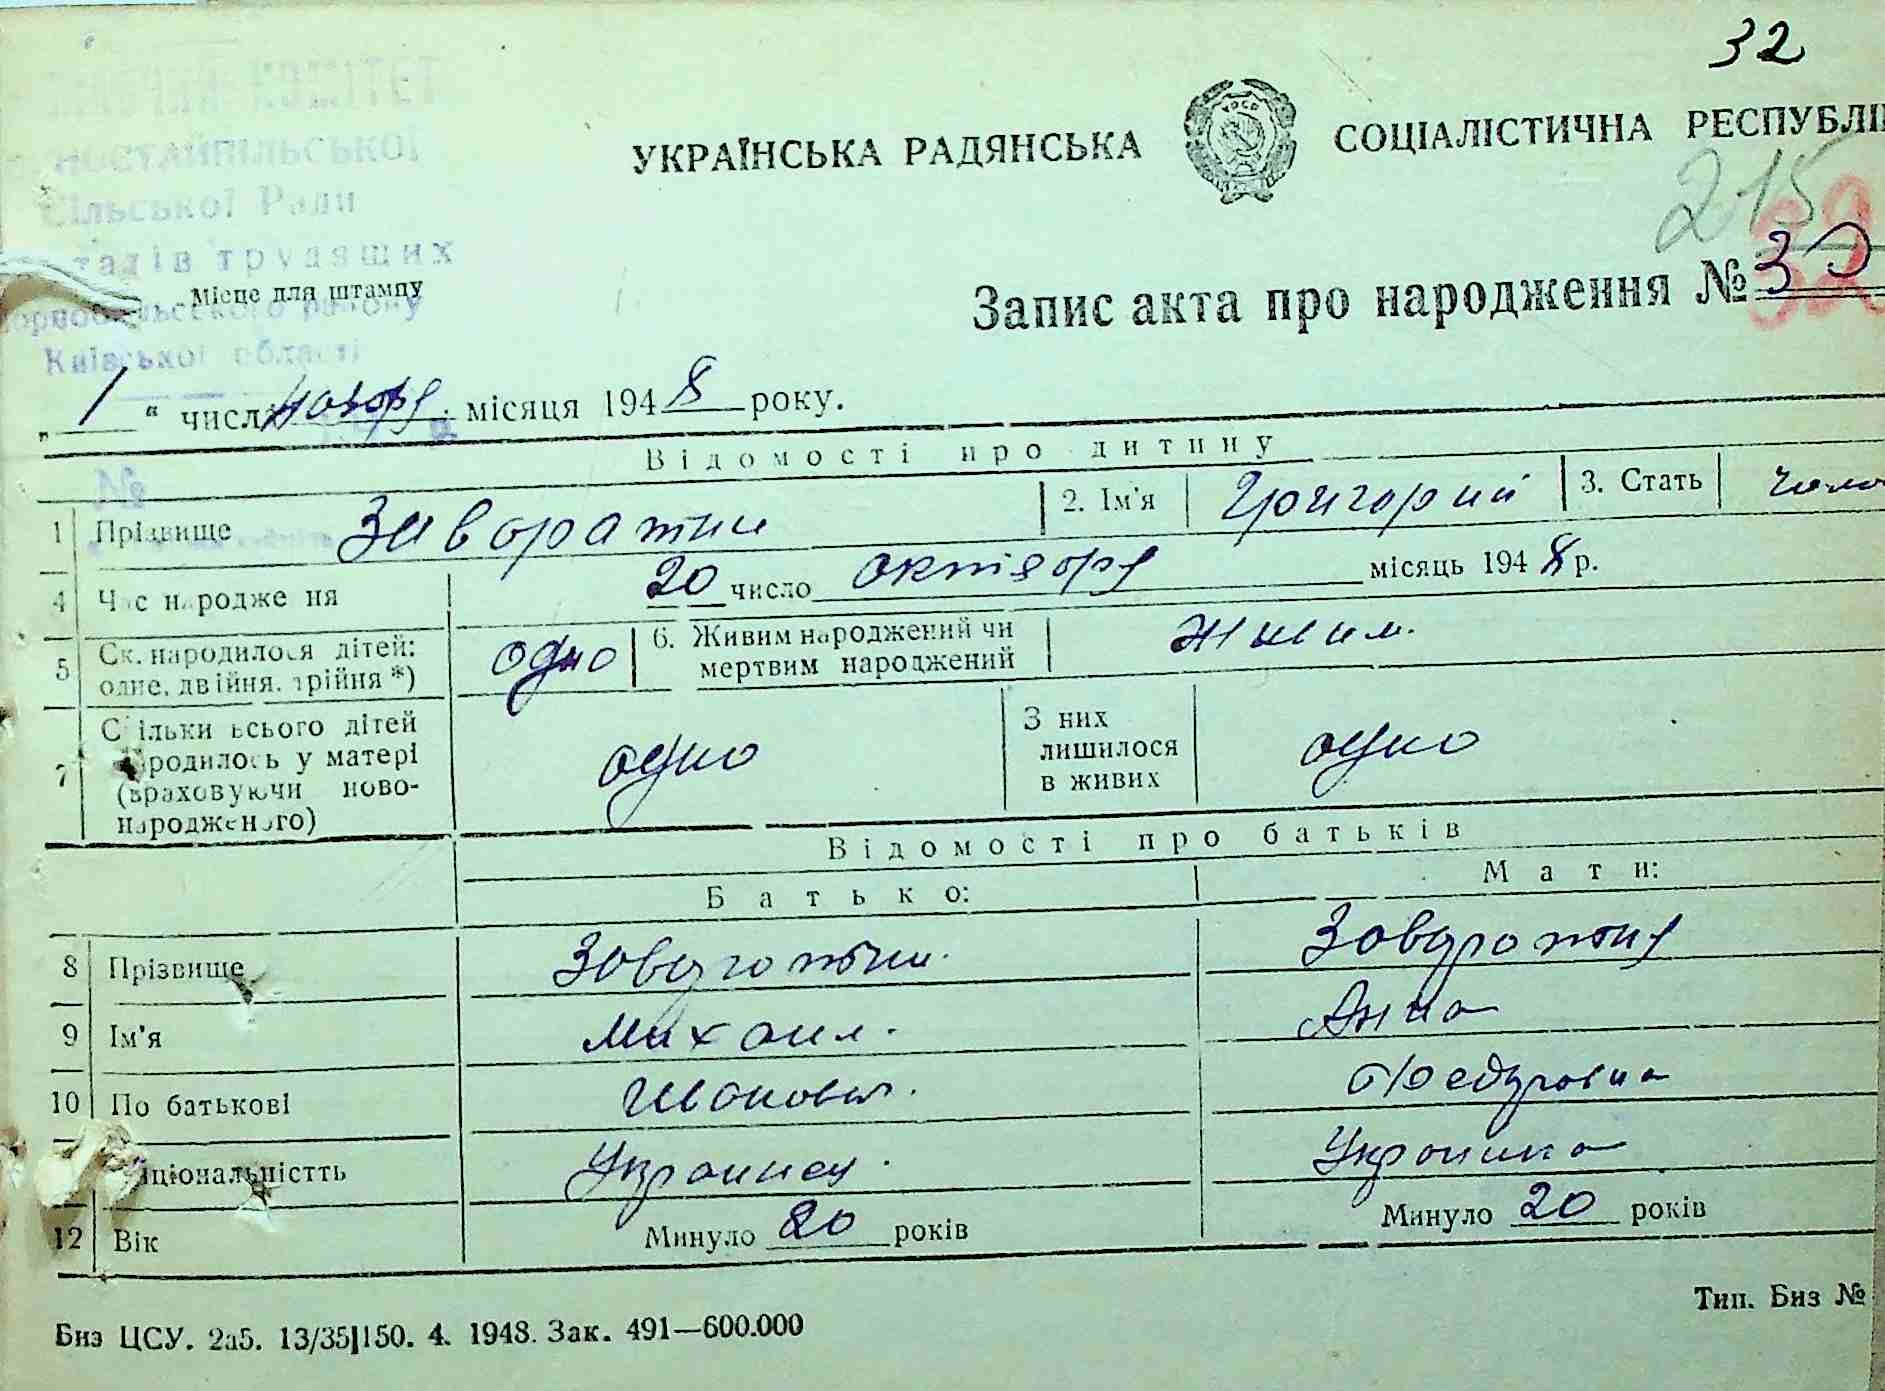 32
УКРАЇНСЬКА РАДЯНСЬКА СОЦІАЛІСТИЧНА РЕСПУБЛІ
КОМІТЕТ
Сільської Ради
трудящих
Місце для штампу
району
Київської області
215
32
Запис акта про народження №
„1“ числа ноября місяця 1948 року.
№
Відомості про дитину
1 Прізвище Заворатин 2. Ім'я Григорий 3. Стать
4 Час народження 20 число октября місяць 1948 р.
5 Ск. народилося дітей: одно 6. Живим народжений чи Живим.
одне, двійня, трійня *) мертвим народжений
7 Скільки всього дітей одно З них одно
народилось у матері лишилося
(враховуючи ново- в живих
народженого)
Відомості про батьків
Батько: Мати:
8 Прізвище
9 Ім'я Михаил. Анна
10 По батькові Иванович. Федоровна
Національністть Украинец. Украинка
12 Вік Минуло 20 років Минуло 20 років
Биз ЦСУ. 2а5. 13/35|150. 4. 1948. Зак. 491—600.000
Тип. Биз №